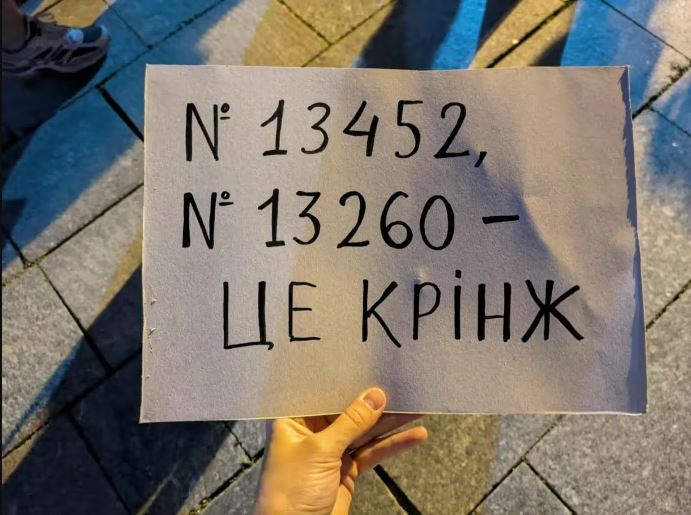 № 13452,
№ 13260 –
ЦЕ КРІНЖ